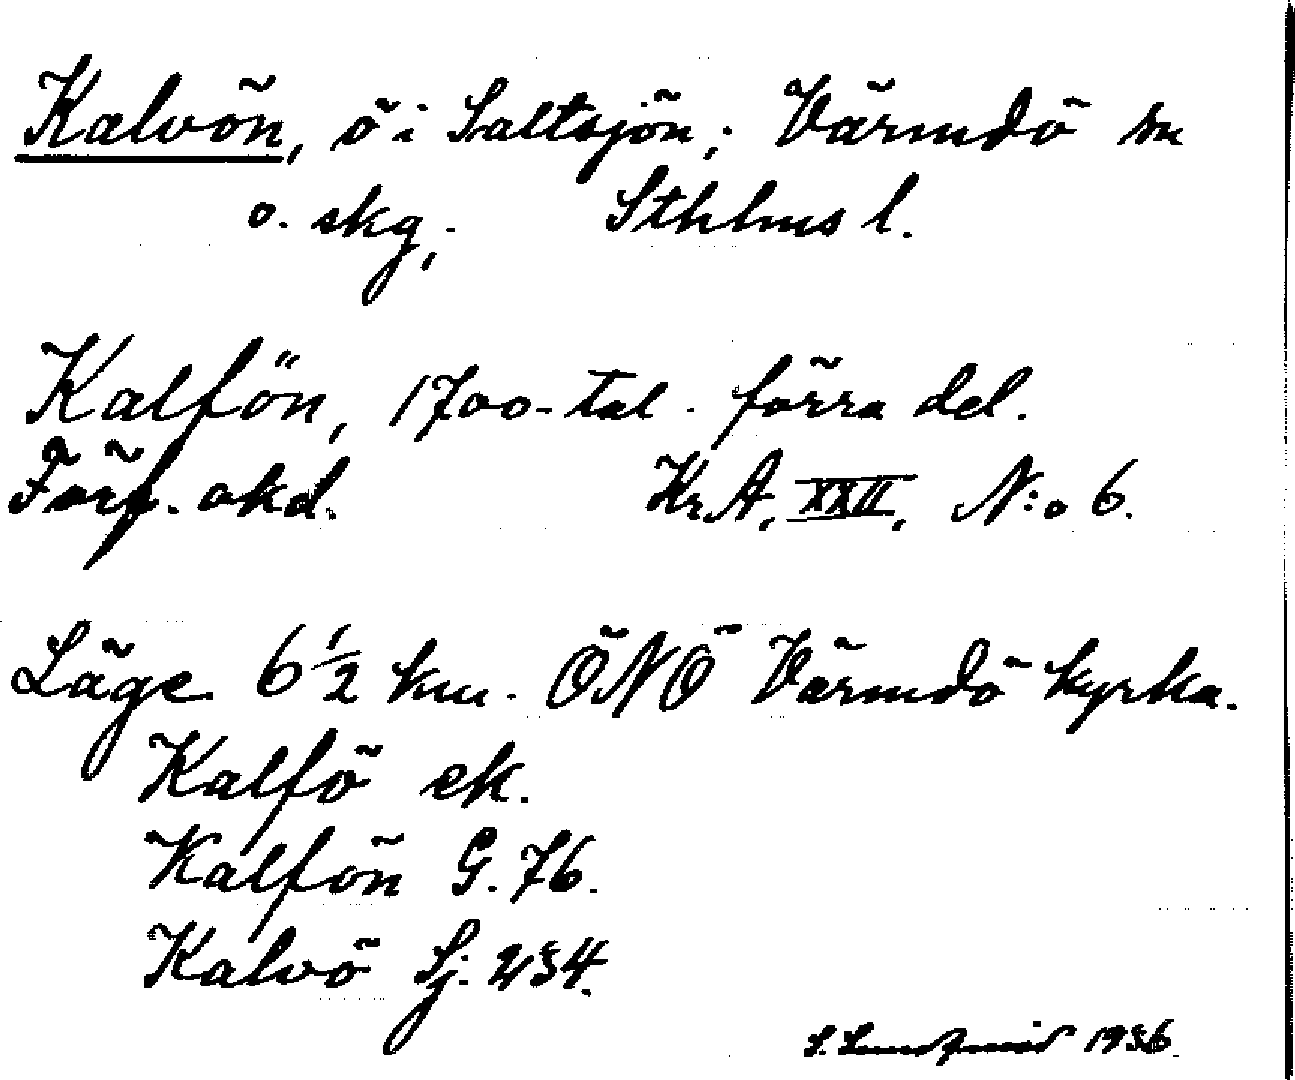 Kalvön, ö i Saltsjön; Värmdö sn
o. skg; Sthlms l.
Kalfön, 1700-tal. förra del.
Förf. okd. Kr.A. XXII, N:o 6.
Läge 6 1/2 km. ÖNÖ Värmdö kyrka.
Kalfö ek.
Kalfön G. 76.
Kalvö Sj. 234.
S. 1936.